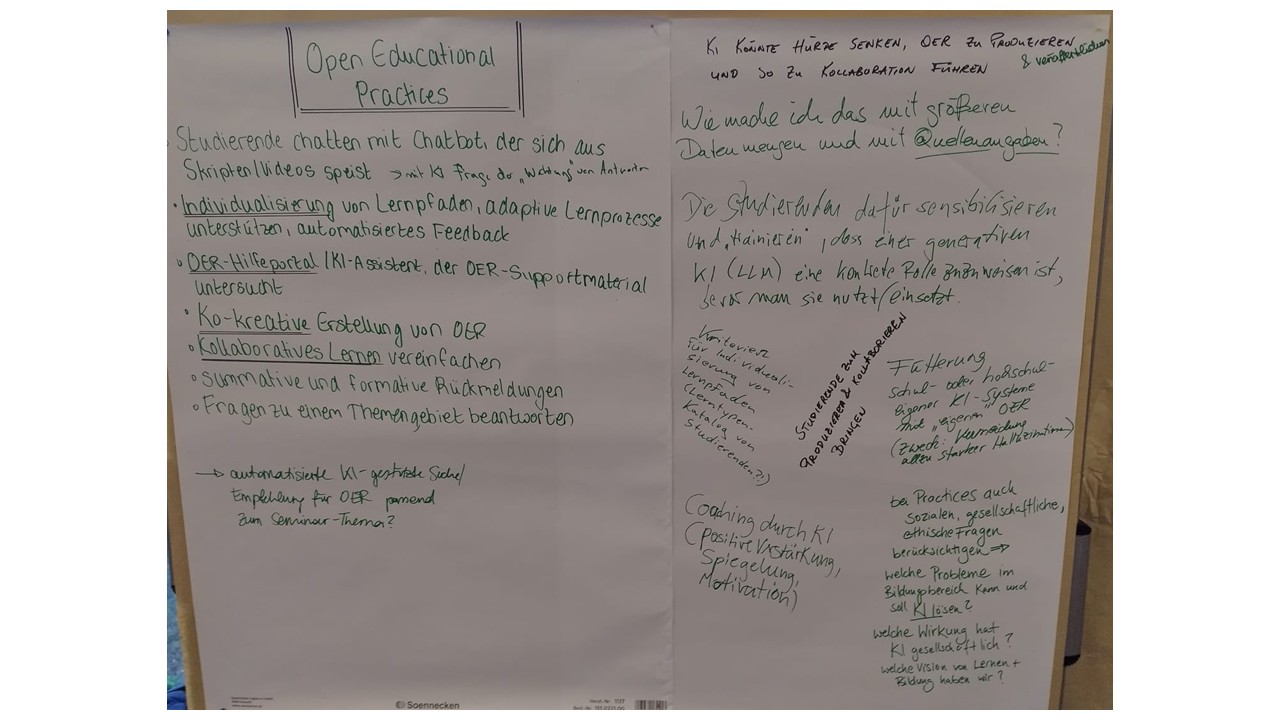 Open Educational
Practices
Studierende chatten mit Chatbot, der sich aus
Skripten/Videos speist → mit KI Frage der „Wertung“ von Antworten
• Individualisierung von Lernpfaden, adaptive Lernprozesse
unterstützen, automatisiertes Feedback
• OER-Hilfeportal / KI-Assistent, der OER-Supportmaterial
untersucht
• Ko-kreative Erstellung von OER
• Kollaboratives Lernen vereinfachen
• Summative und formative Rückmeldungen
• Fragen zu einem Themengebiet beantworten
→ automatisierte KI-gestützte Suche/
Empfehlung für OER passend
zum Seminar-Thema?
Soennecken
KI KÖNNTE HÜRDE SENKEN, OER ZU PRODUZIEREN
& veröffentlichen
UND SO ZU KOLLABORATION FÜHREN
Wie mache ich das mit größeren
Datenmengen und mit Quellenangaben?
Die Studierenden dafür sensibilisieren
und „trainieren“, dass einer generativen
KI (LLM) eine konkrete Rolle zuzuweisen ist,
bevor man sie nutzt/einsetzt.
Kriterien
für Individuali-
sierung von
Lernpfaden
(Lerntypen-
Katalog von
Studierenden?!)
STUDIERENDE ZUM
PRODUZIEREN & KOLLABORIEREN
BRINGEN
Fütterung
schul- oder hochschul-
eigener KI-Systeme
mit „eigenen“ OER
(Zweck: Vermeidung
allzu starker Halluzinationen)
Coaching durch KI
(positive Verstärkung,
Spiegelung,
Motivation)
bei Practices auch
sozialen, gesellschaftliche,
ethische Fragen
berücksichtigen ⇒
welche Probleme im
Bildungsbereich kann und
soll KI lösen?
welche Wirkung hat
KI gesellschaftlich?
welche Vision von Lernen +
Bildung haben wir?